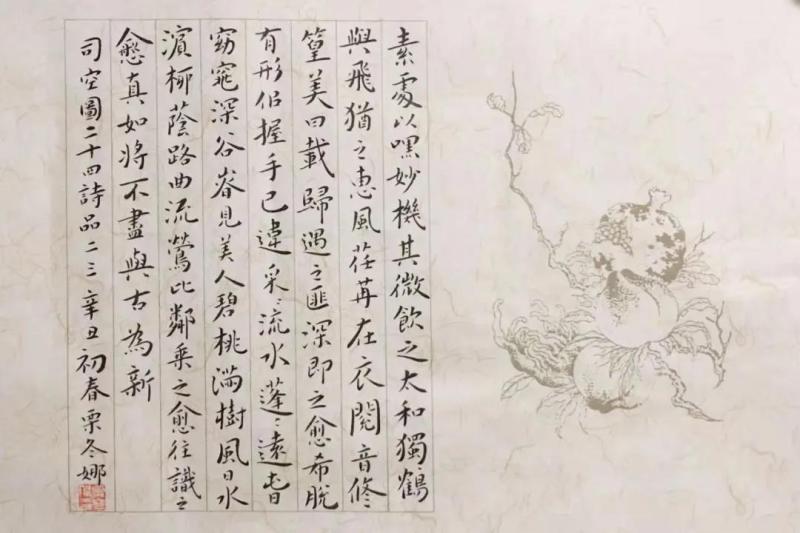 素處以嘿妙機其微飲之太和獨鶴
與飛猶之惠風荏苒在衣閱音修
篁美曰載歸遇之匪深即之愈希脫
有形佀握手已違采〻流水蓬〻遠旾
窈窕深谷峕見美人碧桃滿樹風日水
濱柳蔭路曲流鶯比鄰乘之愈往識之
愈真如將不盡與古為新
司空圖二十四詩品二三辛丑初春栗冬娜